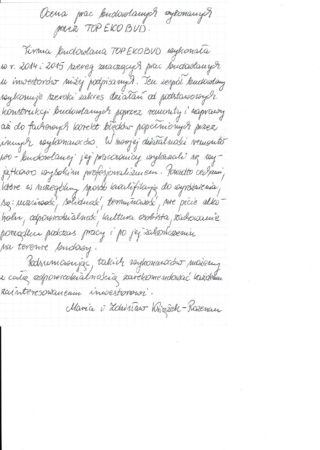 Ocena prac budowlanych wykonanych
przez TOP EKO BUD.
Firma budowlana TOP EKO BUD wykonała
w r. 2014 i 2015 szereg znaczących prac budowlanych
u inwestorów niżej podpisanych. Ten zespół budowlany
wykonuje szeroki zakres działań od podstawowych
konstrukcji budowlanych poprzez remonty i naprawy
aż do fachowych korekt błędów popełnionych przez
innych wykonawców. W swojej działalności remonto
wo-budowlanej jej pracownicy wykazali się wy-
jątkowo wysokim profesjonalizmem. Ponadto cechami,
które w szczególny sposób kwalifikują do wyróżnienia,
są: uczciwość, solidność, terminowość, nie picie alko-
holu, odpowiedzialność, kultura osobista, zachowanie
porządku podczas pracy i po jej zakończeniu
na terenie budowy.
Podsumowując, takich wykonawców możemy
z całą odpowiedzialnością zarekomendować każdemu
zainteresowanemu inwestorowi.
Maria i Zdzisław